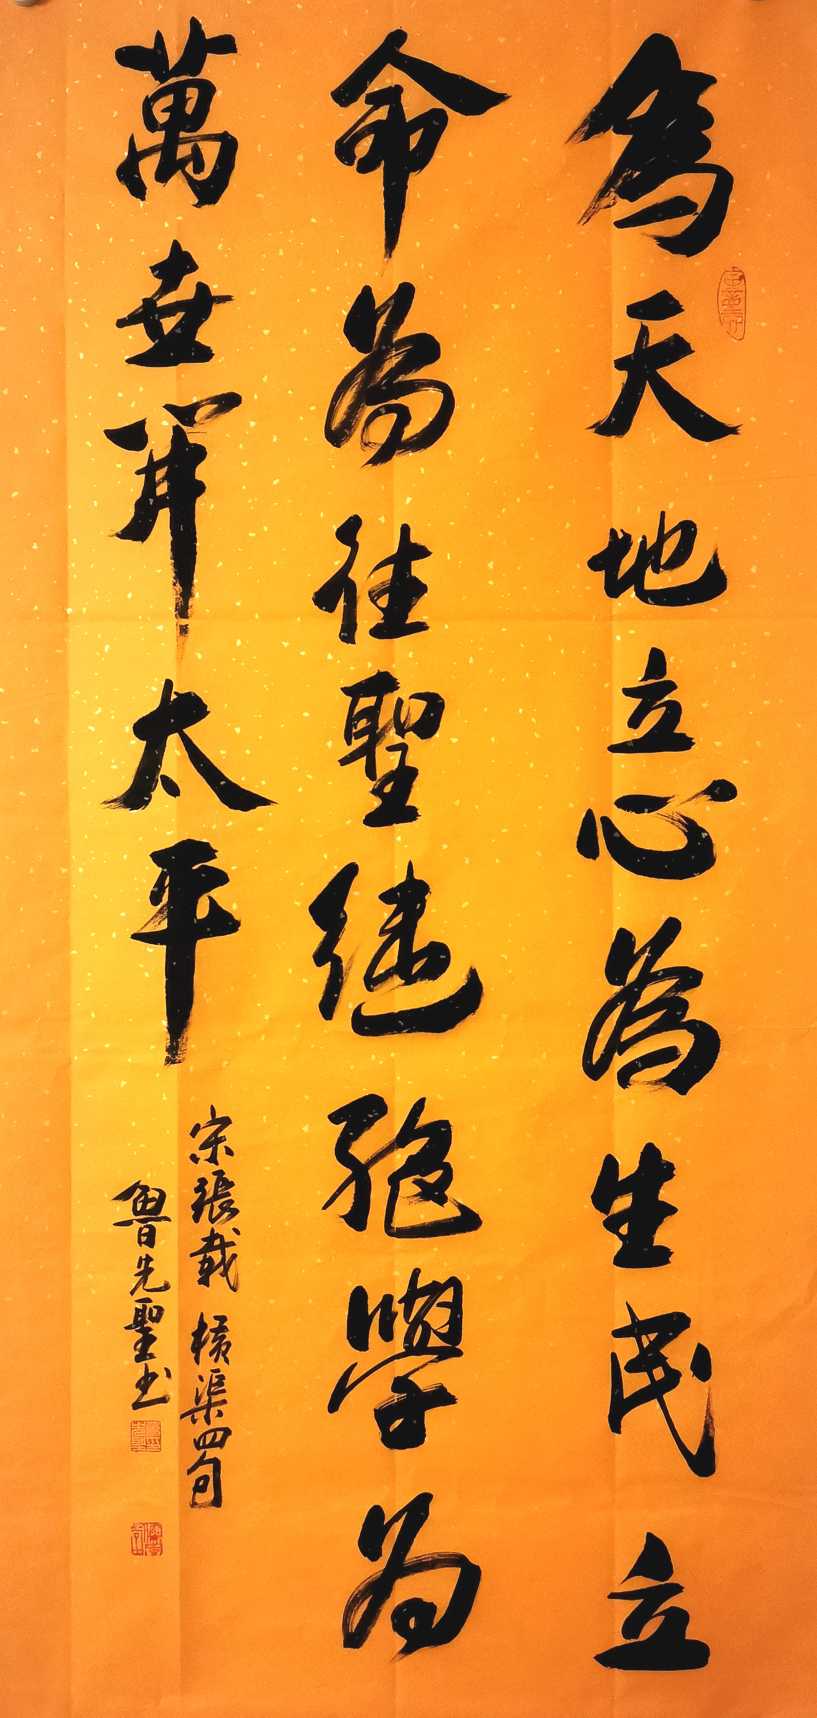 為天地立心為生民立
命為往聖継絶學為
萬世開太平
宋張載橫渠四句
魯先聖书